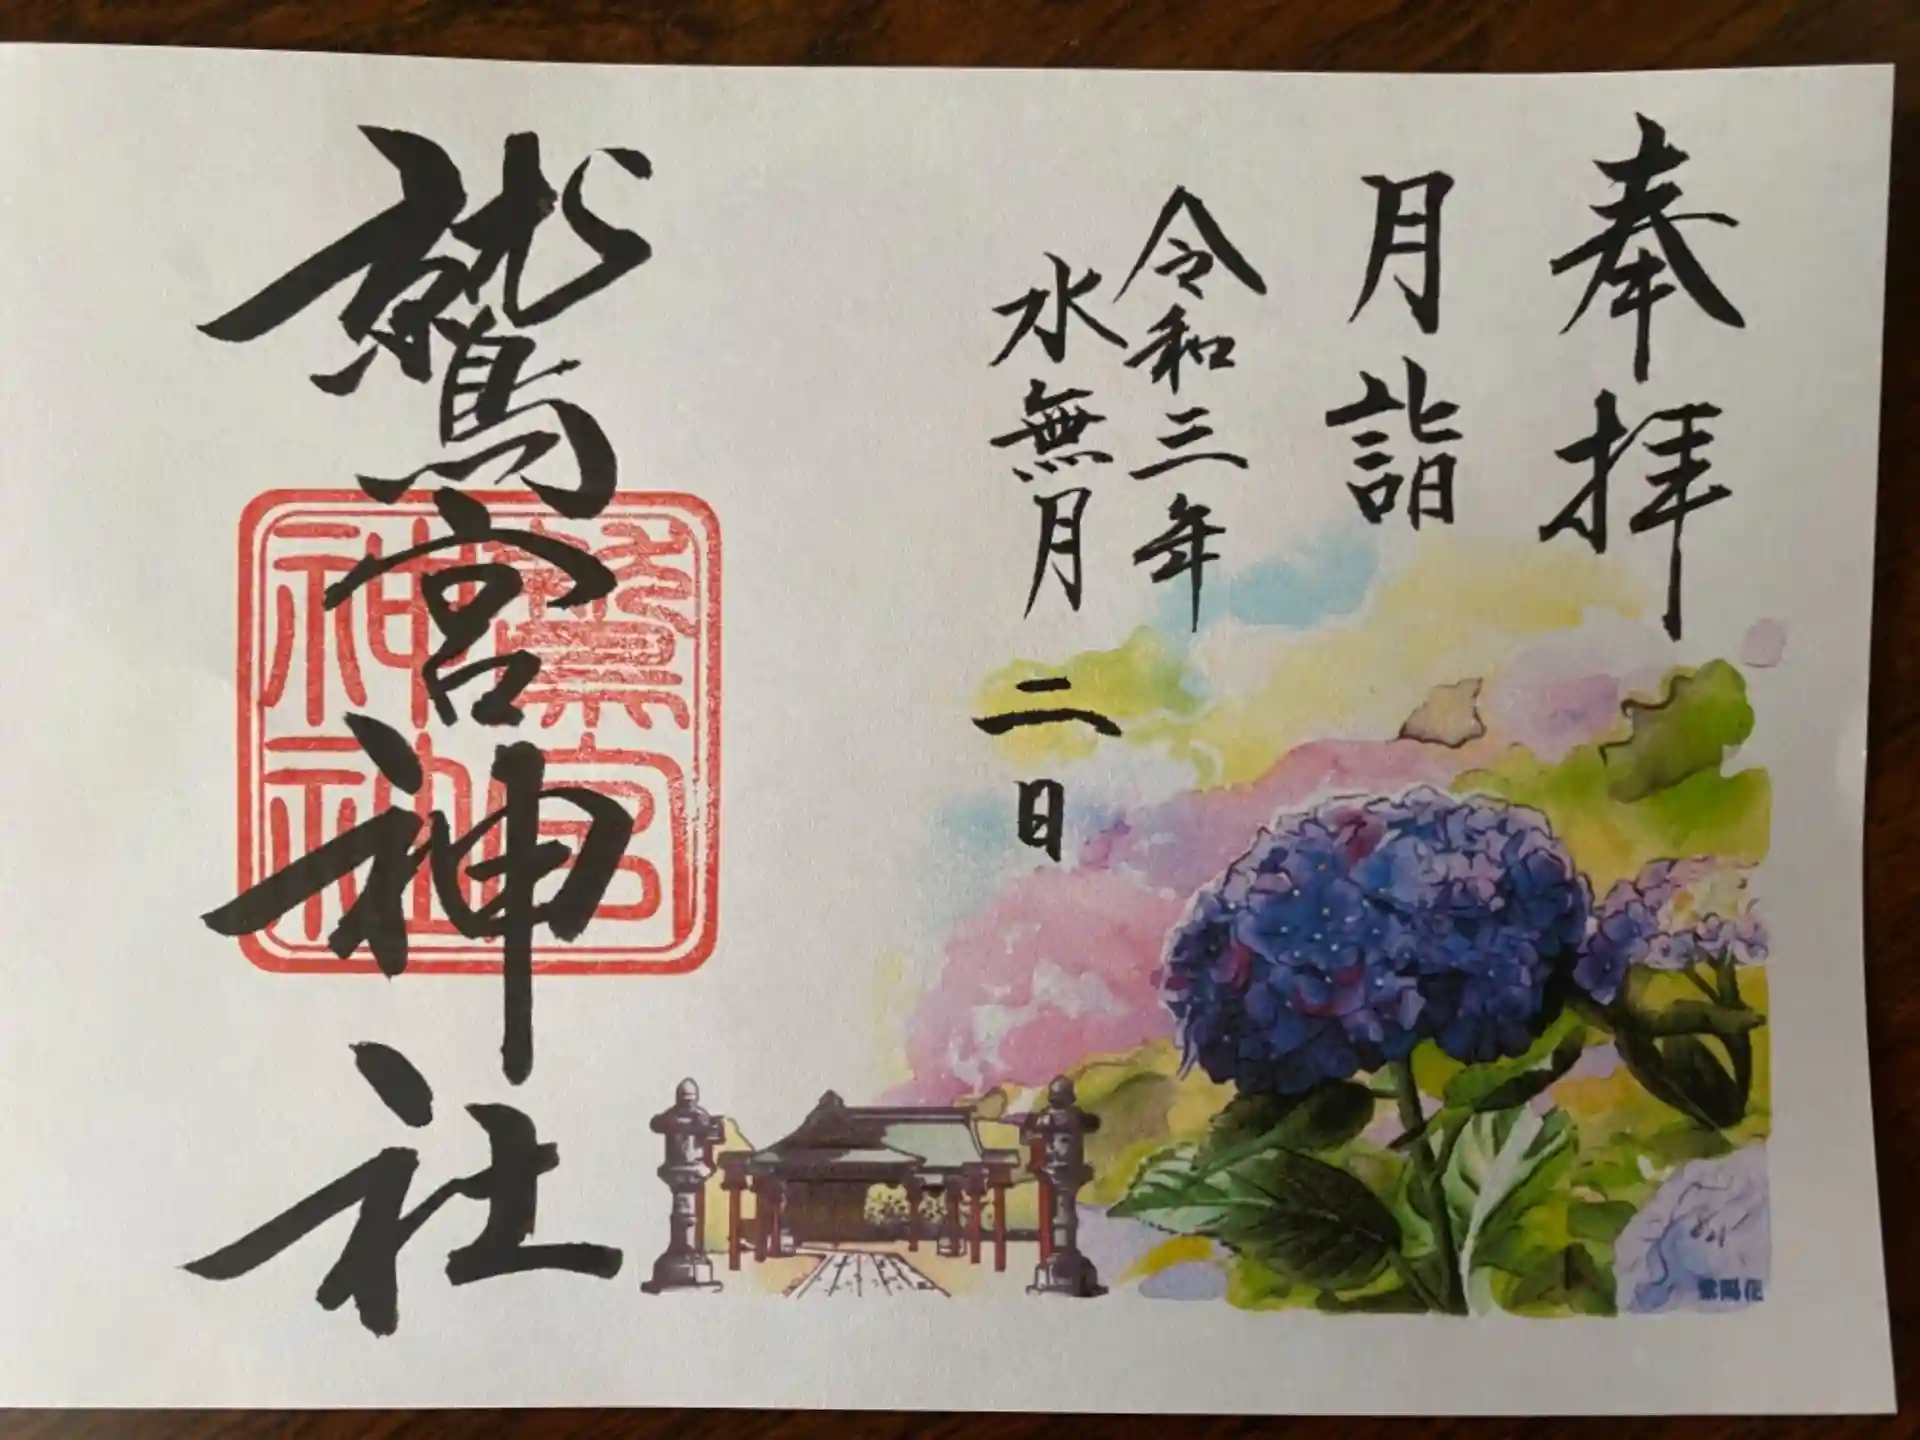 奉拝
月詣
令和三年
水無月二日
鷲宮神社
鷲宮神社
紫陽花